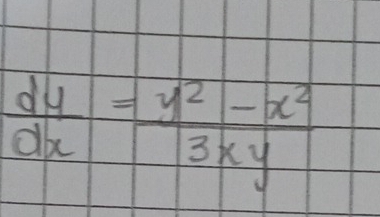 dy/dx = (y² - x²)/(3xy)